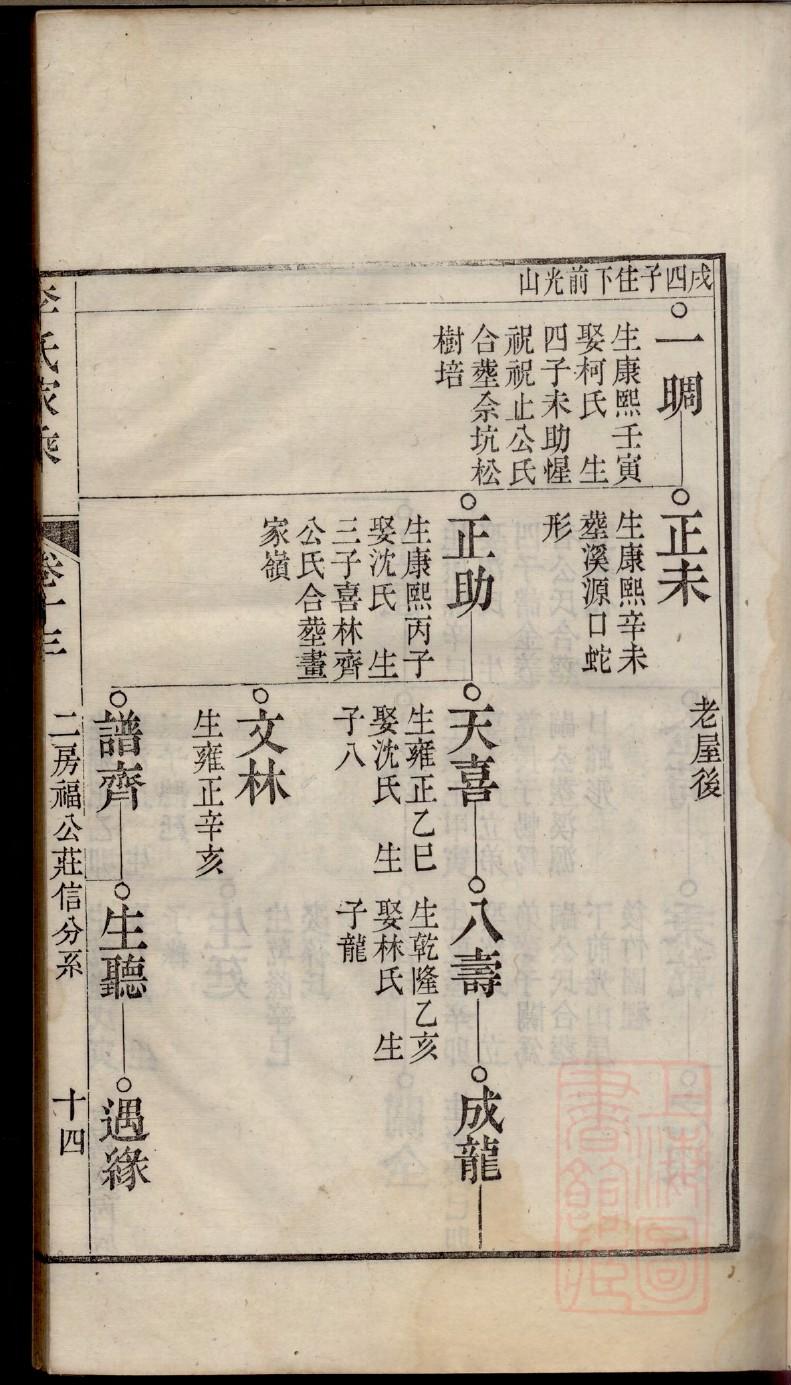 戌四子住下前光山
一晭
生康熙壬寅
娶柯氏 生
四子未助惺
祝祝止公氏
合塟佘坑松
樹培
正未
生康熙辛未
塟溪源口蛇
形
正助
生康熙丙子
娶沈氏 生
三子喜林齊
公氏合塟畫
家嶺
老屋後
天喜
生雍正乙巳
娶沈氏 生
子八
文林
生雍正辛亥
譜齊
八壽
生乾隆乙亥
娶林氏 生
子龍
生聽
成龍
遇緣
李氏家乘
卷十三
二房福公莊信分系
十四
上海圖
書館藏